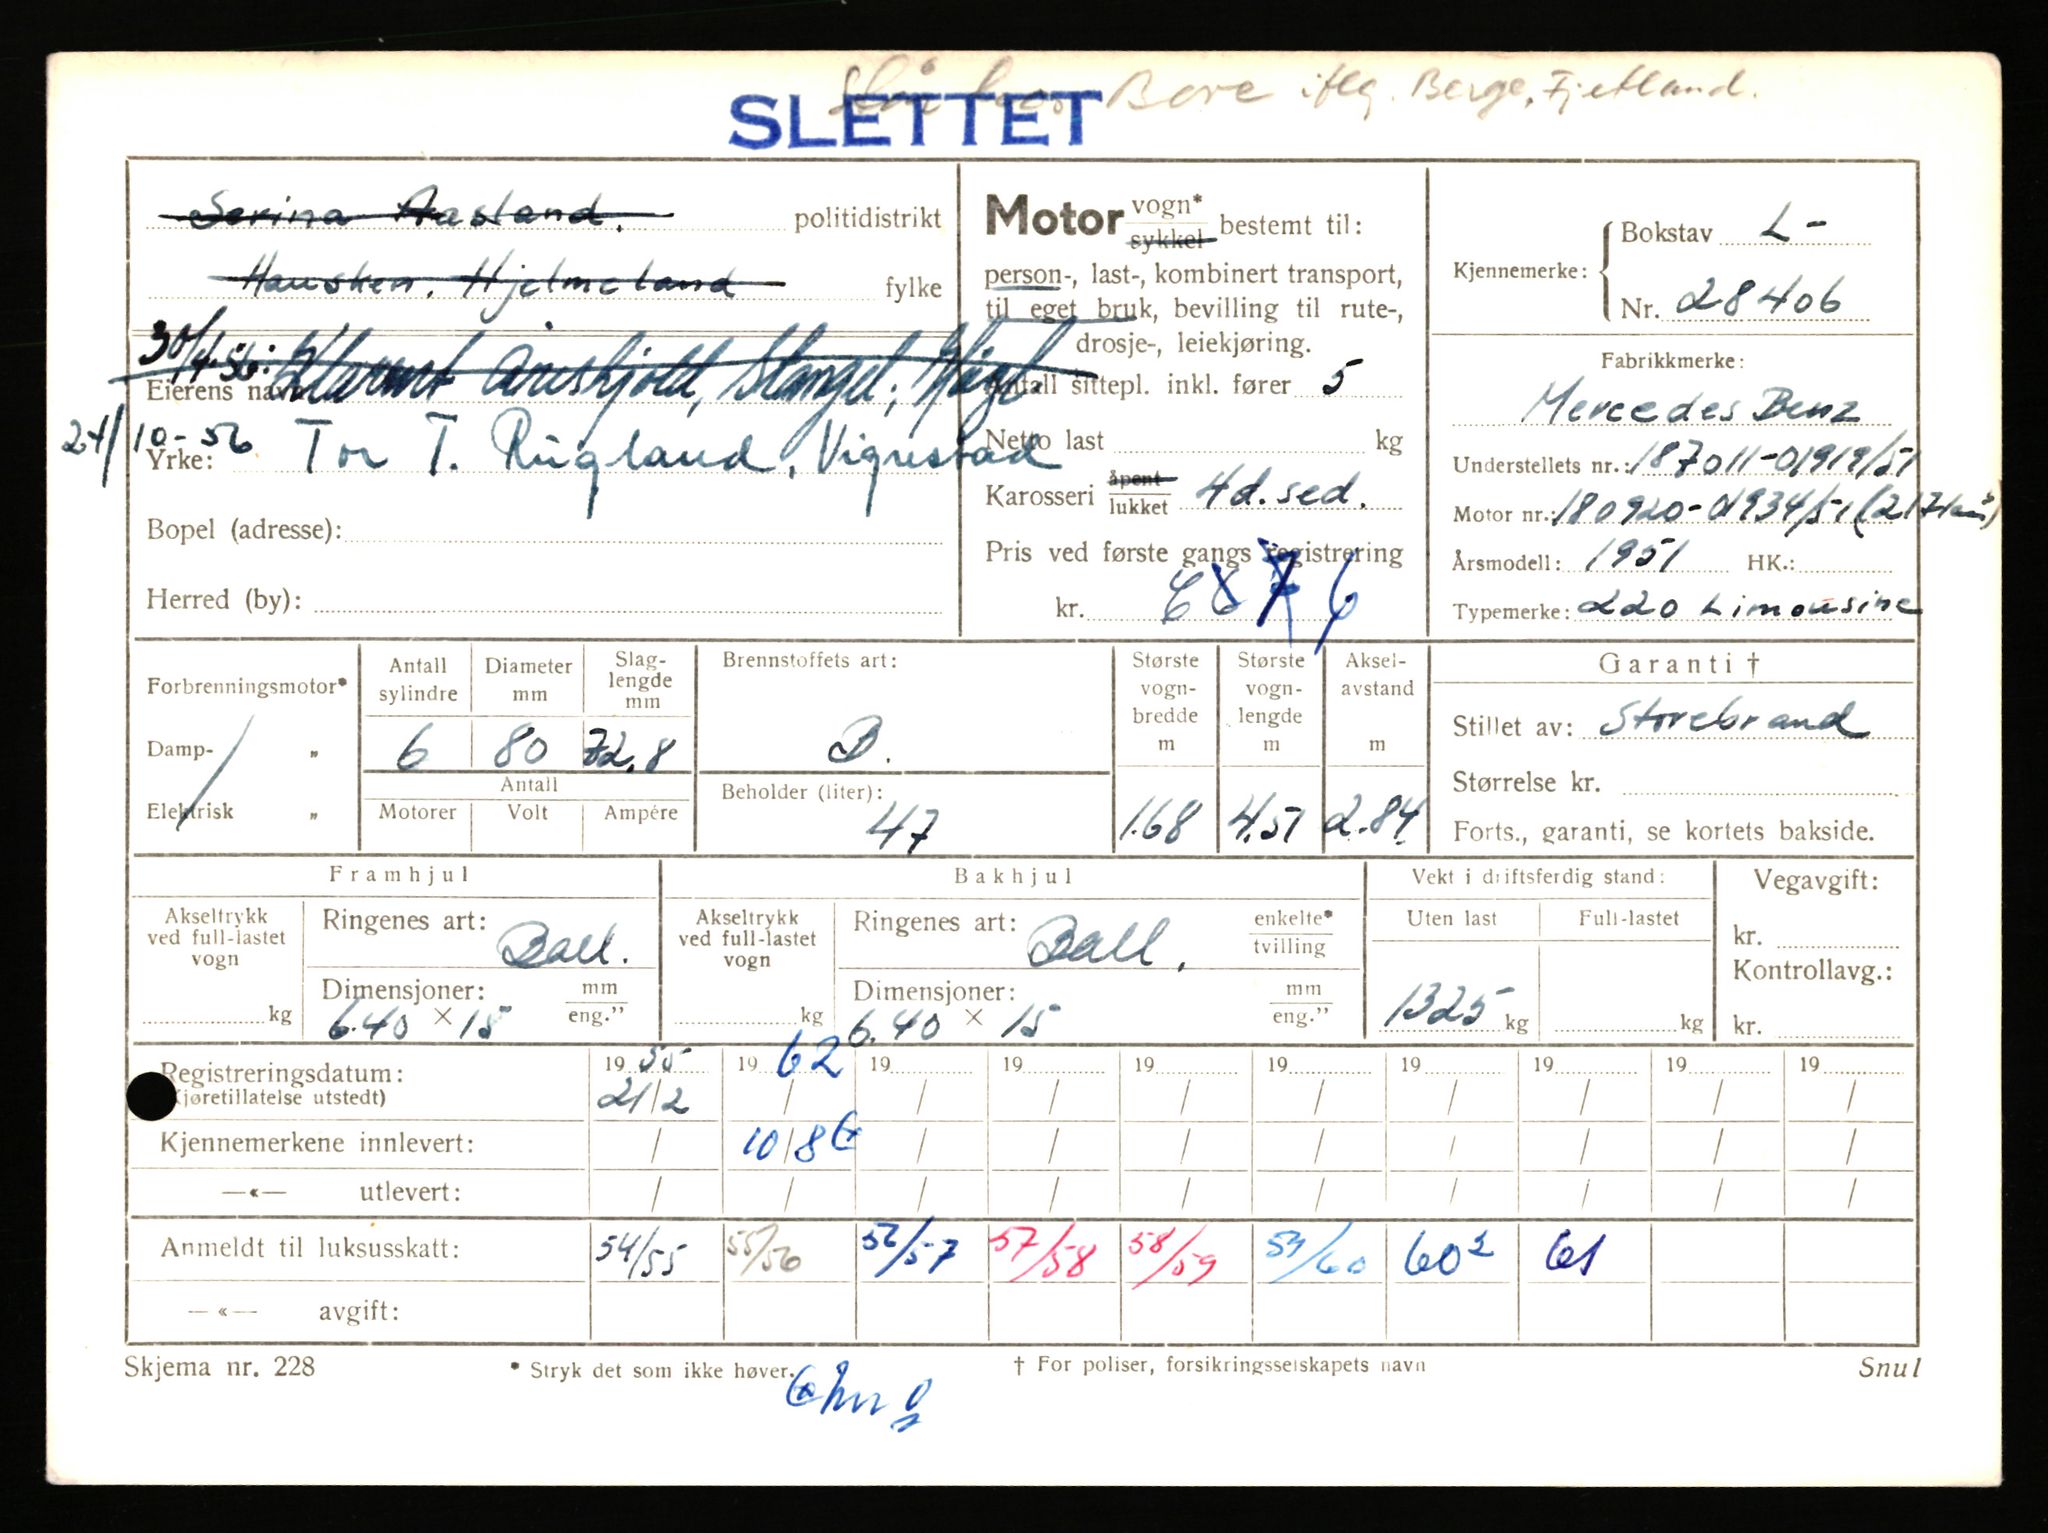 Bore iflg. Berge, Fjetland.
SLETTET
Serina Aasland. politidistrikt
Hausken. Hjelmeland fylke
30/4-56:
Eierens navn
24/10-56 Tor T. Rugland, Vigrestad
Yrke:
Bopel (adresse):
Herred (by):
Motor vogn* sykkel bestemt til:
person-, last-, kombinert transport,
til eget bruk, bevilling til rute-,
drosje-, leiekjøring.
Antall sittepl. inkl. fører 5
Netto last kg
Karosseri åpent lukket 4d. sed.
Pris ved første gangs registrering
kr.
Kjennemerke: { Bokstav L-
Nr. 28406
Fabrikkmerke:
Mercedes Benz
Understellets nr.: 187011-01919/51
Motor nr.: 180920-01934/51
Årsmodell: 1951 HK.:
Typemerke: 220 Limousine
Forbrenningsmotor*
Damp- „
Elektrisk „
Antall sylindre Diameter mm Slag-lengde mm
6 80 72.8
Antall
Motorer Volt Ampére
Brennstoffets art:
B.
Beholder (liter):
47
Største vogn-bredde m Største vogn-lengde m Aksel-avstand m
1.68 4.51 2.84
Garanti †
Stillet av: Storebrand
Størrelse kr.
Forts., garanti, se kortets bakside.
Framhjul
Akseltrykk ved full-lastet vogn
kg
Ringenes art: Ball.
Dimensjoner: mm eng."
6.40 × 15
Bakhjul
Akseltrykk ved full-lastet vogn
kg
Ringenes art: Ball. enkelte* tvilling
Dimensjoner: mm eng."
6.40 × 15
Vekt i driftsferdig stand:
Uten last Full-lastet
1325 kg kg
Vegavgift:
kr.
Kontrollavg.:
kr.
Registreringsdatum: 19 55 19 62 19 19 19 19 19 19 19 19
(Kjøretillatelse utstedt) 21/2 / / / / / / / / /
Kjennemerkene innlevert: / 10/8 / / / / / / / /
—«— utlevert: / / / / / / / / / /
Anmeldt til luksusskatt: 54/55 55/56 56/57 57/58 58/59 59/60 60² 61
—«— avgift:
Skjema nr. 228 * Stryk det som ikke høver. † For poliser, forsikringsselskapets navn Snul